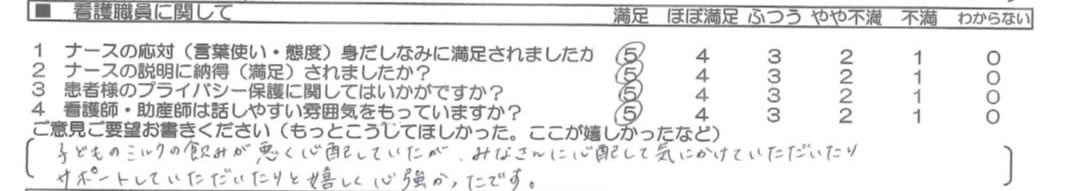 ■ 看護職員に関して 満足 ほぼ満足 ふつう やや不満 不満 わからない
1 ナースの応対（言葉使い・態度）身だしなみに満足されましたか 5 4 3 2 1 0
2 ナースの説明に納得（満足）されましたか？ 5 4 3 2 1 0
3 患者様のプライバシー保護に関してはいかがですか？ 5 4 3 2 1 0
4 看護師・助産師は話しやすい雰囲気をもっていますか？ 5 4 3 2 1 0
ご意見ご要望お書きください（もっとこうしてほしかった。ここが嬉しかったなど）
子どものミルクの飲みが悪く心配していたが、みなさんに心配して気にかけていただいたり
サポートしていただいたりと嬉しく心強かったです。